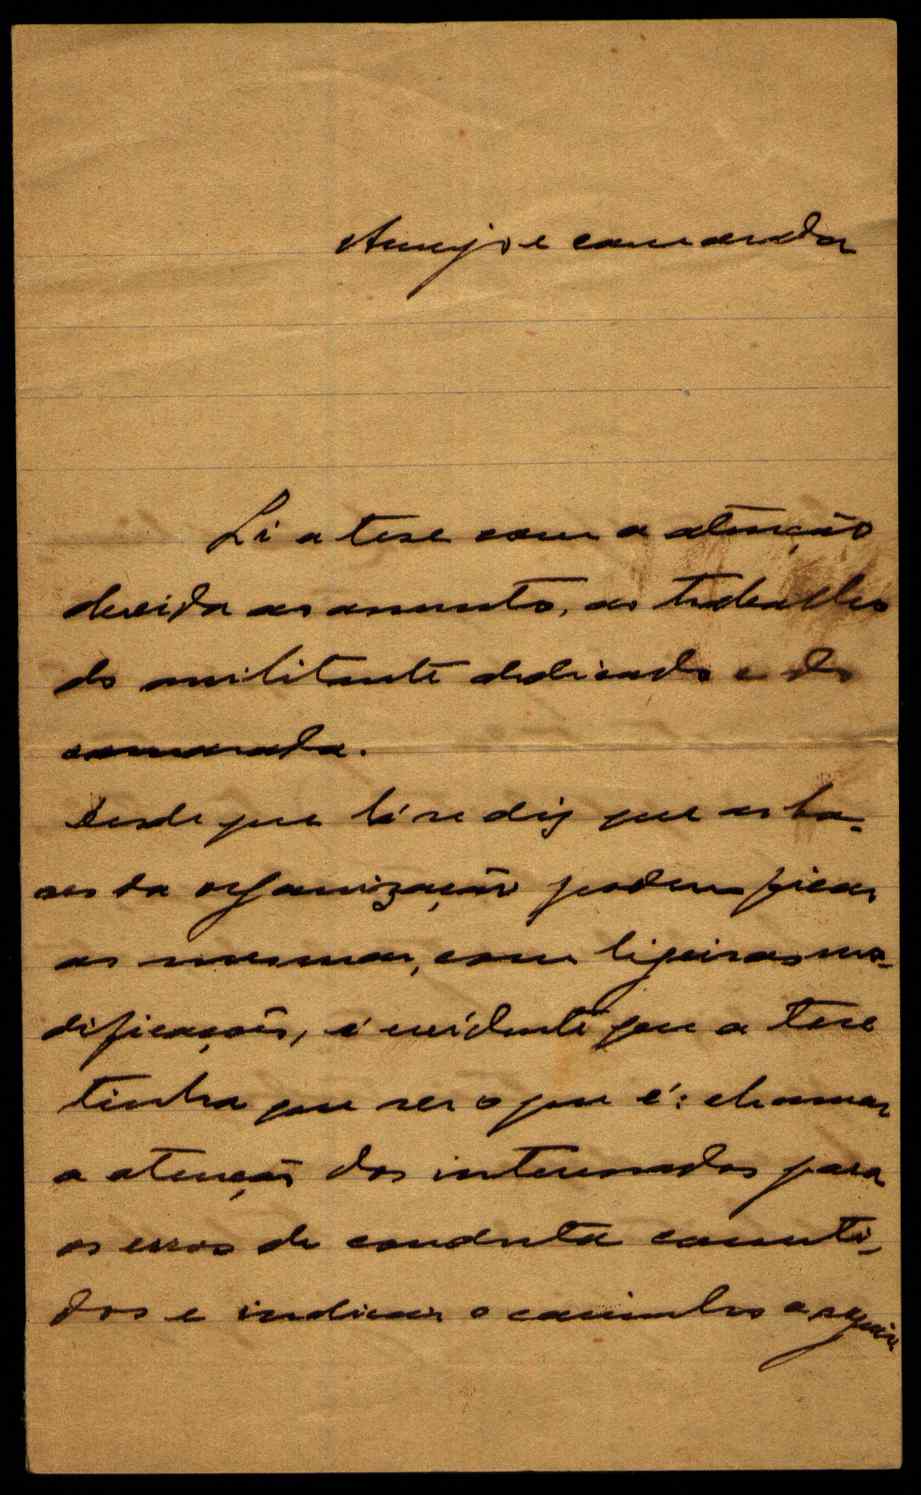 Amigo e camarada
Li a tese com a atenção
devida ao assunto, ao trabalho
do militante dedicado e do
camarada.
Desde que lá se diz que as ba-
ses da organização podem ficar
as mesmas, com ligeiras mo-
dificações, é evidente que a tese
tinha que ser o que é: chamar
a atenção dos interessados para
os erros de conduta cometi-
dos e indicar o caminho a seguir